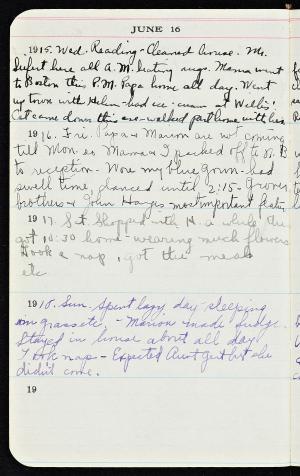 JUNE 16
1915. Wed. Reading - Cleaned house. Mr.
here all A.M. beating rugs. Mama went
to Boston this P.M. Papa home all day. Went
up town with Helen - had ice-cream at Wells'.
Cat came down this eve - walked part home with her.
1916. Fri. Papa & Marion are not coming
till Mon. so Mama & I packed off to
to reception. Wore my blue gown - had
swell time, danced until 2:15 -
brothers & John Hayes most important
1917. Sat. Shopped with H. a while this
got 10:30 home - wearing much flowers
Took a nap, got the meals
etc.
1918. Sun. Spent lazy day - sleeping
on grass etc. - Marion made fudge.
Stayed in house about all day
Took nap - Expected Aunt but she
didn't come.
19